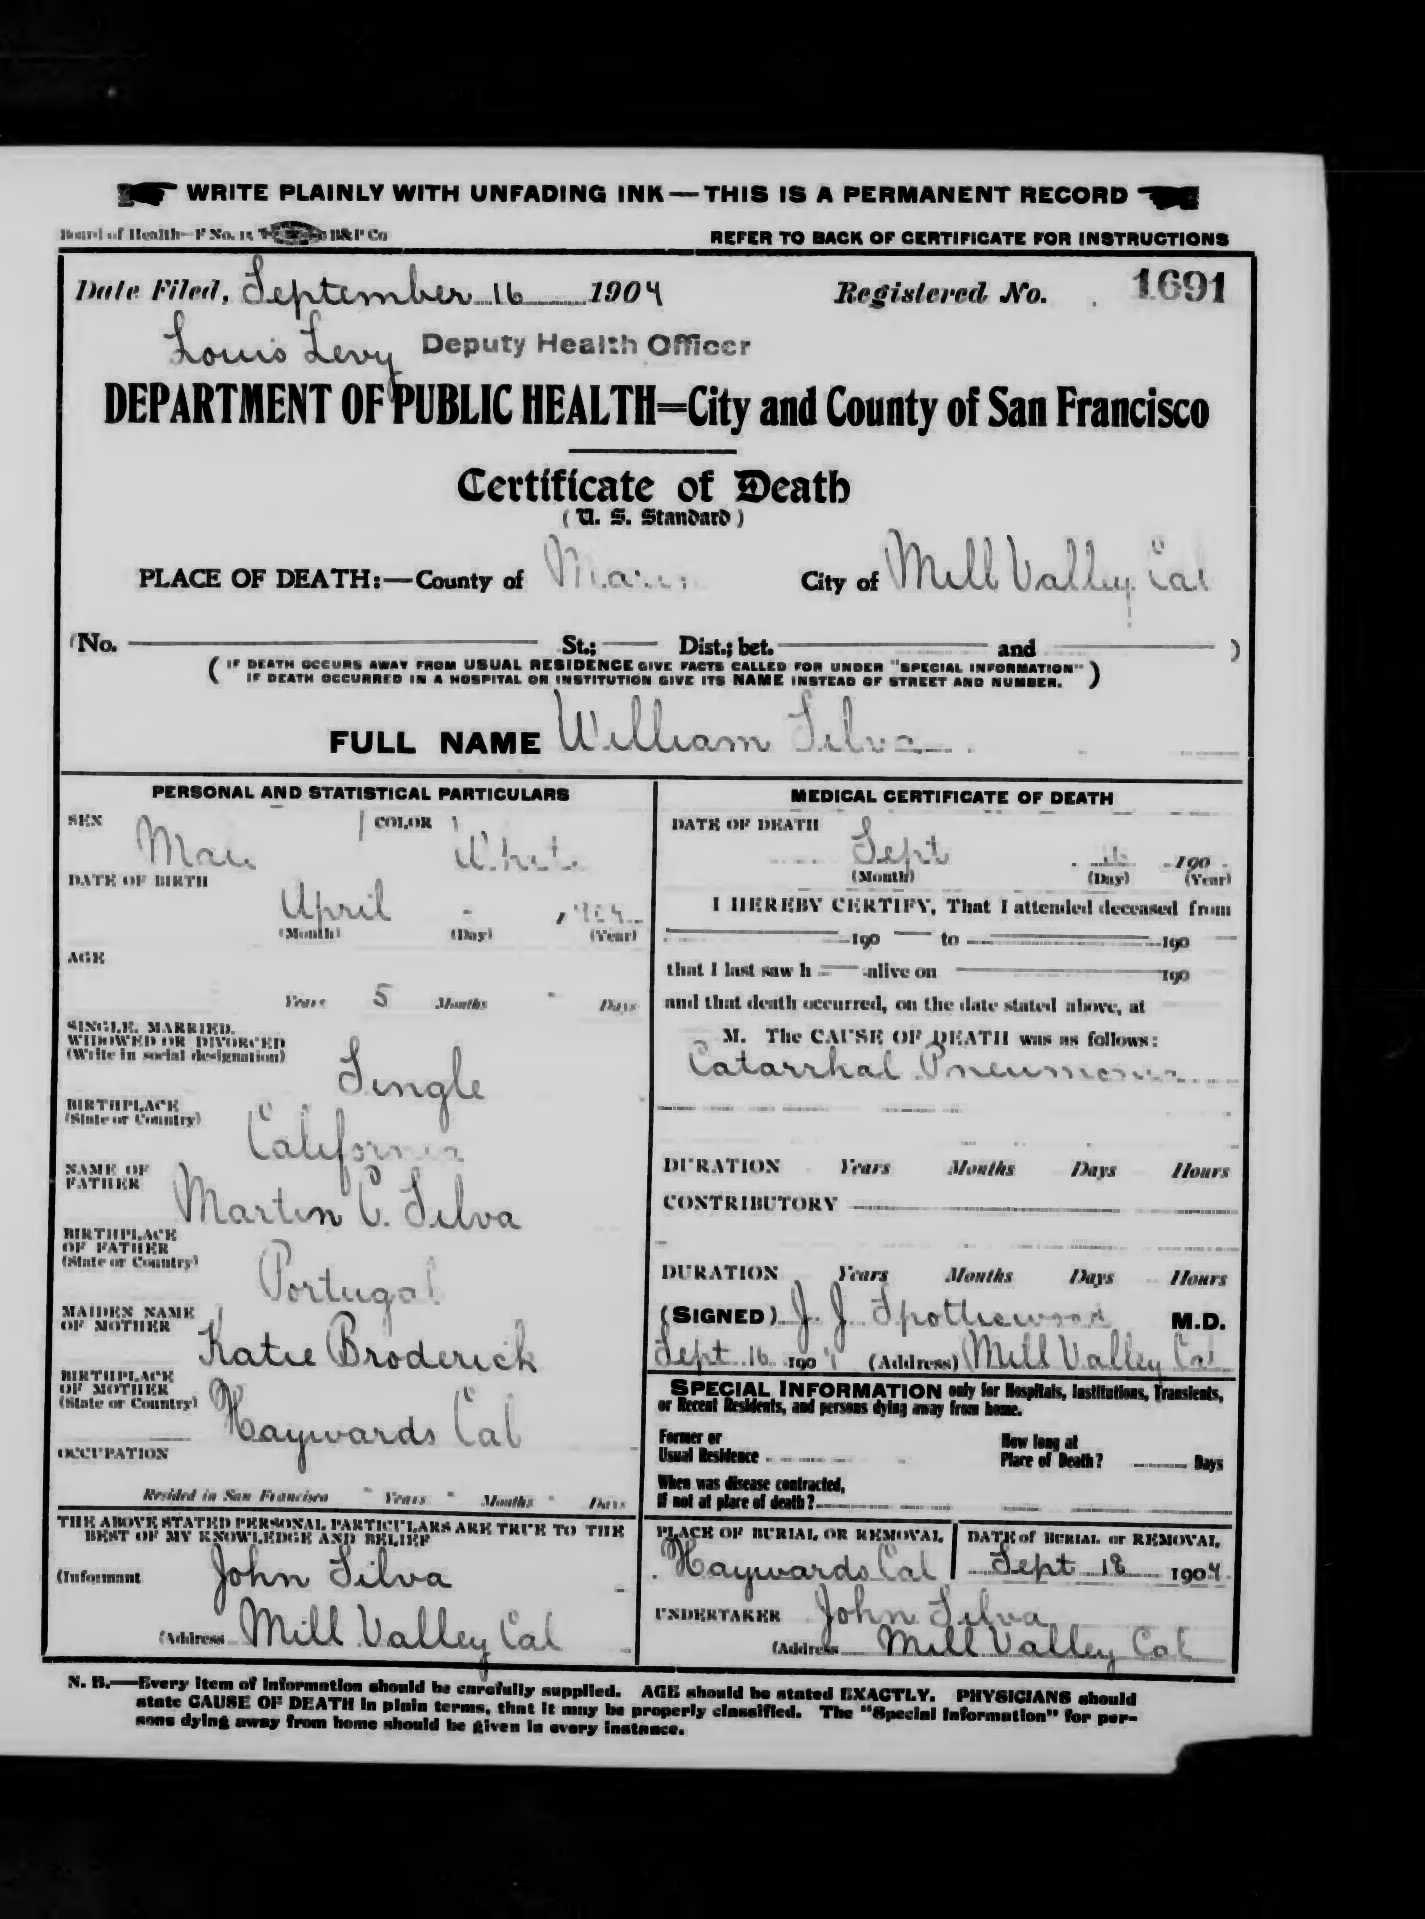 WRITE PLAINLY WITH UNFADING INK—THIS IS A PERMANENT RECORD
Board of Health—F No. 15 B&P Co
REFER TO BACK OF CERTIFICATE FOR INSTRUCTIONS
Date Filed, September 16 1904 Registered No. 1691
Louis Levy Deputy Health Officer
DEPARTMENT OF PUBLIC HEALTH=City and County of San Francisco
Certificate of Death
(U. S. Standard)
PLACE OF DEATH:—County of Marin City of Mill Valley Cal
(No. St.; Dist.; bet. and )
(IF DEATH OCCURS AWAY FROM USUAL RESIDENCE GIVE FACTS CALLED FOR UNDER "SPECIAL INFORMATION"
IF DEATH OCCURRED IN A HOSPITAL OR INSTITUTION GIVE ITS NAME INSTEAD OF STREET AND NUMBER.)
FULL NAME William Silva
PERSONAL AND STATISTICAL PARTICULARS
SEX COLOR
Male White
DATE OF BIRTH
April 1904
(Month) (Day) (Year)
AGE
Years 5 Months Days
SINGLE, MARRIED,
WIDOWED OR DIVORCED
(Write in social designation)
Single
BIRTHPLACE
(State or Country)
California
NAME OF
FATHER
Martin C. Silva
BIRTHPLACE
OF FATHER
(State or Country)
Portugal
MAIDEN NAME
OF MOTHER
Katie Broderick
BIRTHPLACE
OF MOTHER
(State or Country)
Haywards Cal
OCCUPATION
Resided in San Francisco " Years " Months " Days
THE ABOVE STATED PERSONAL PARTICULARS ARE TRUE TO THE
BEST OF MY KNOWLEDGE AND BELIEF
(Informant John Silva
(Address Mill Valley Cal
MEDICAL CERTIFICATE OF DEATH
DATE OF DEATH
Sept 16 190
(Month) (Day) (Year)
I HEREBY CERTIFY, That I attended deceased from
190 to 190
that I last saw h alive on 190
and that death occurred, on the date stated above, at
M. The CAUSE OF DEATH was as follows:
Catarrhal Pneumonia
DURATION Years Months Days Hours
CONTRIBUTORY
DURATION Years Months Days Hours
(SIGNED) J. J. Spottiswood M.D.
Sept 16 1904 (Address) Mill Valley Cal
SPECIAL INFORMATION only for Hospitals, Institutions, Transients,
or Recent Residents, and persons dying away from home.
Former or
Usual Residence
How long at
Place of Death? Days
When was disease contracted,
If not at place of death?
PLACE OF BURIAL OR REMOVAL
Haywards Cal
DATE of BURIAL or REMOVAL
Sept 18 1904
UNDERTAKER John Silva
(Address Mill Valley Cal
N. B.—Every item of information should be carefully supplied. AGE should be stated EXACTLY. PHYSICIANS should
state CAUSE OF DEATH in plain terms, that it may be properly classified. The "Special Information" for per-
sons dying away from home should be given in every instance.